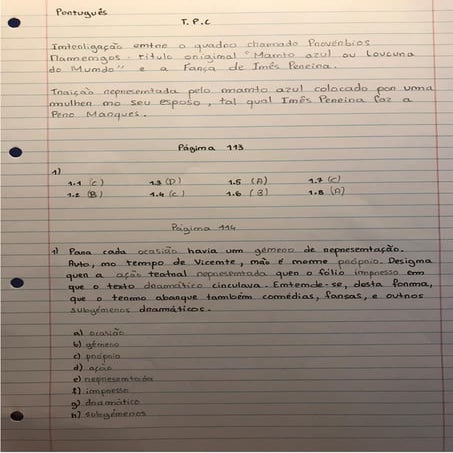 Português
T.P.C
Interligação entre o quadro chamado Provérbios
Flamengos - título original "Manto azul ou Loucura
do Mundo" e a Farça de Inês Pereira.
Traição representada pelo manto azul colocado por uma
mulher no seu esposo, tal qual Inês Pereira faz a
Pero Marques.
Página 113
1)
1.1 (C) 1.3 (D) 1.5 (A) 1.7 (C)
1.2 (B) 1.4 (C) 1.6 (B) 1.8 (A)
Página 114
1) Para cada ocasião havia um género de representação.
Auto, no tempo de Vicente, não é nome próprio. Designa
quer a ação teatral representada quer o fólio impresso em
que o texto dramático circulava. Entende-se, desta forma,
que o termo abarque também comédias, farsas, e outros
subgéneros dramáticos.
a) ocasião
b) género
c) próprio
d) ação
e) representada
f) impresso
g) dramático
h) subgéneros